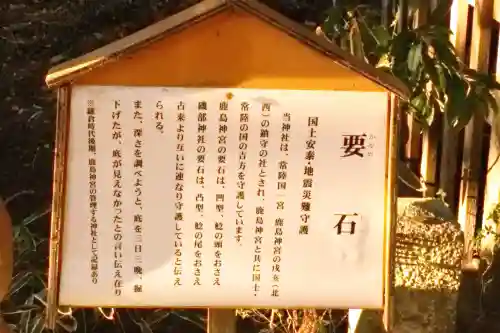 要石
かなめ
国土安泰・地震災難守護
当神社は、常陸国一宮 鹿島神宮の戌亥(北
西)の鎮守の社とされ、鹿島神宮と共に国土・
常陸の国の吉方を守護しています。
鹿島神宮の要石は、凹型、鯰の頭をおさえ
磯部神社の要石は、凸型、鯰の尾をおさえ
古来より互いに連なり守護していると伝え
られる。
また、深さを調べようと、底を三日三晩、掘
下げたが、底が見えなかったとの言い伝え在り
※鎌倉時代後期、鹿島神宮の管理する神社として記録あり